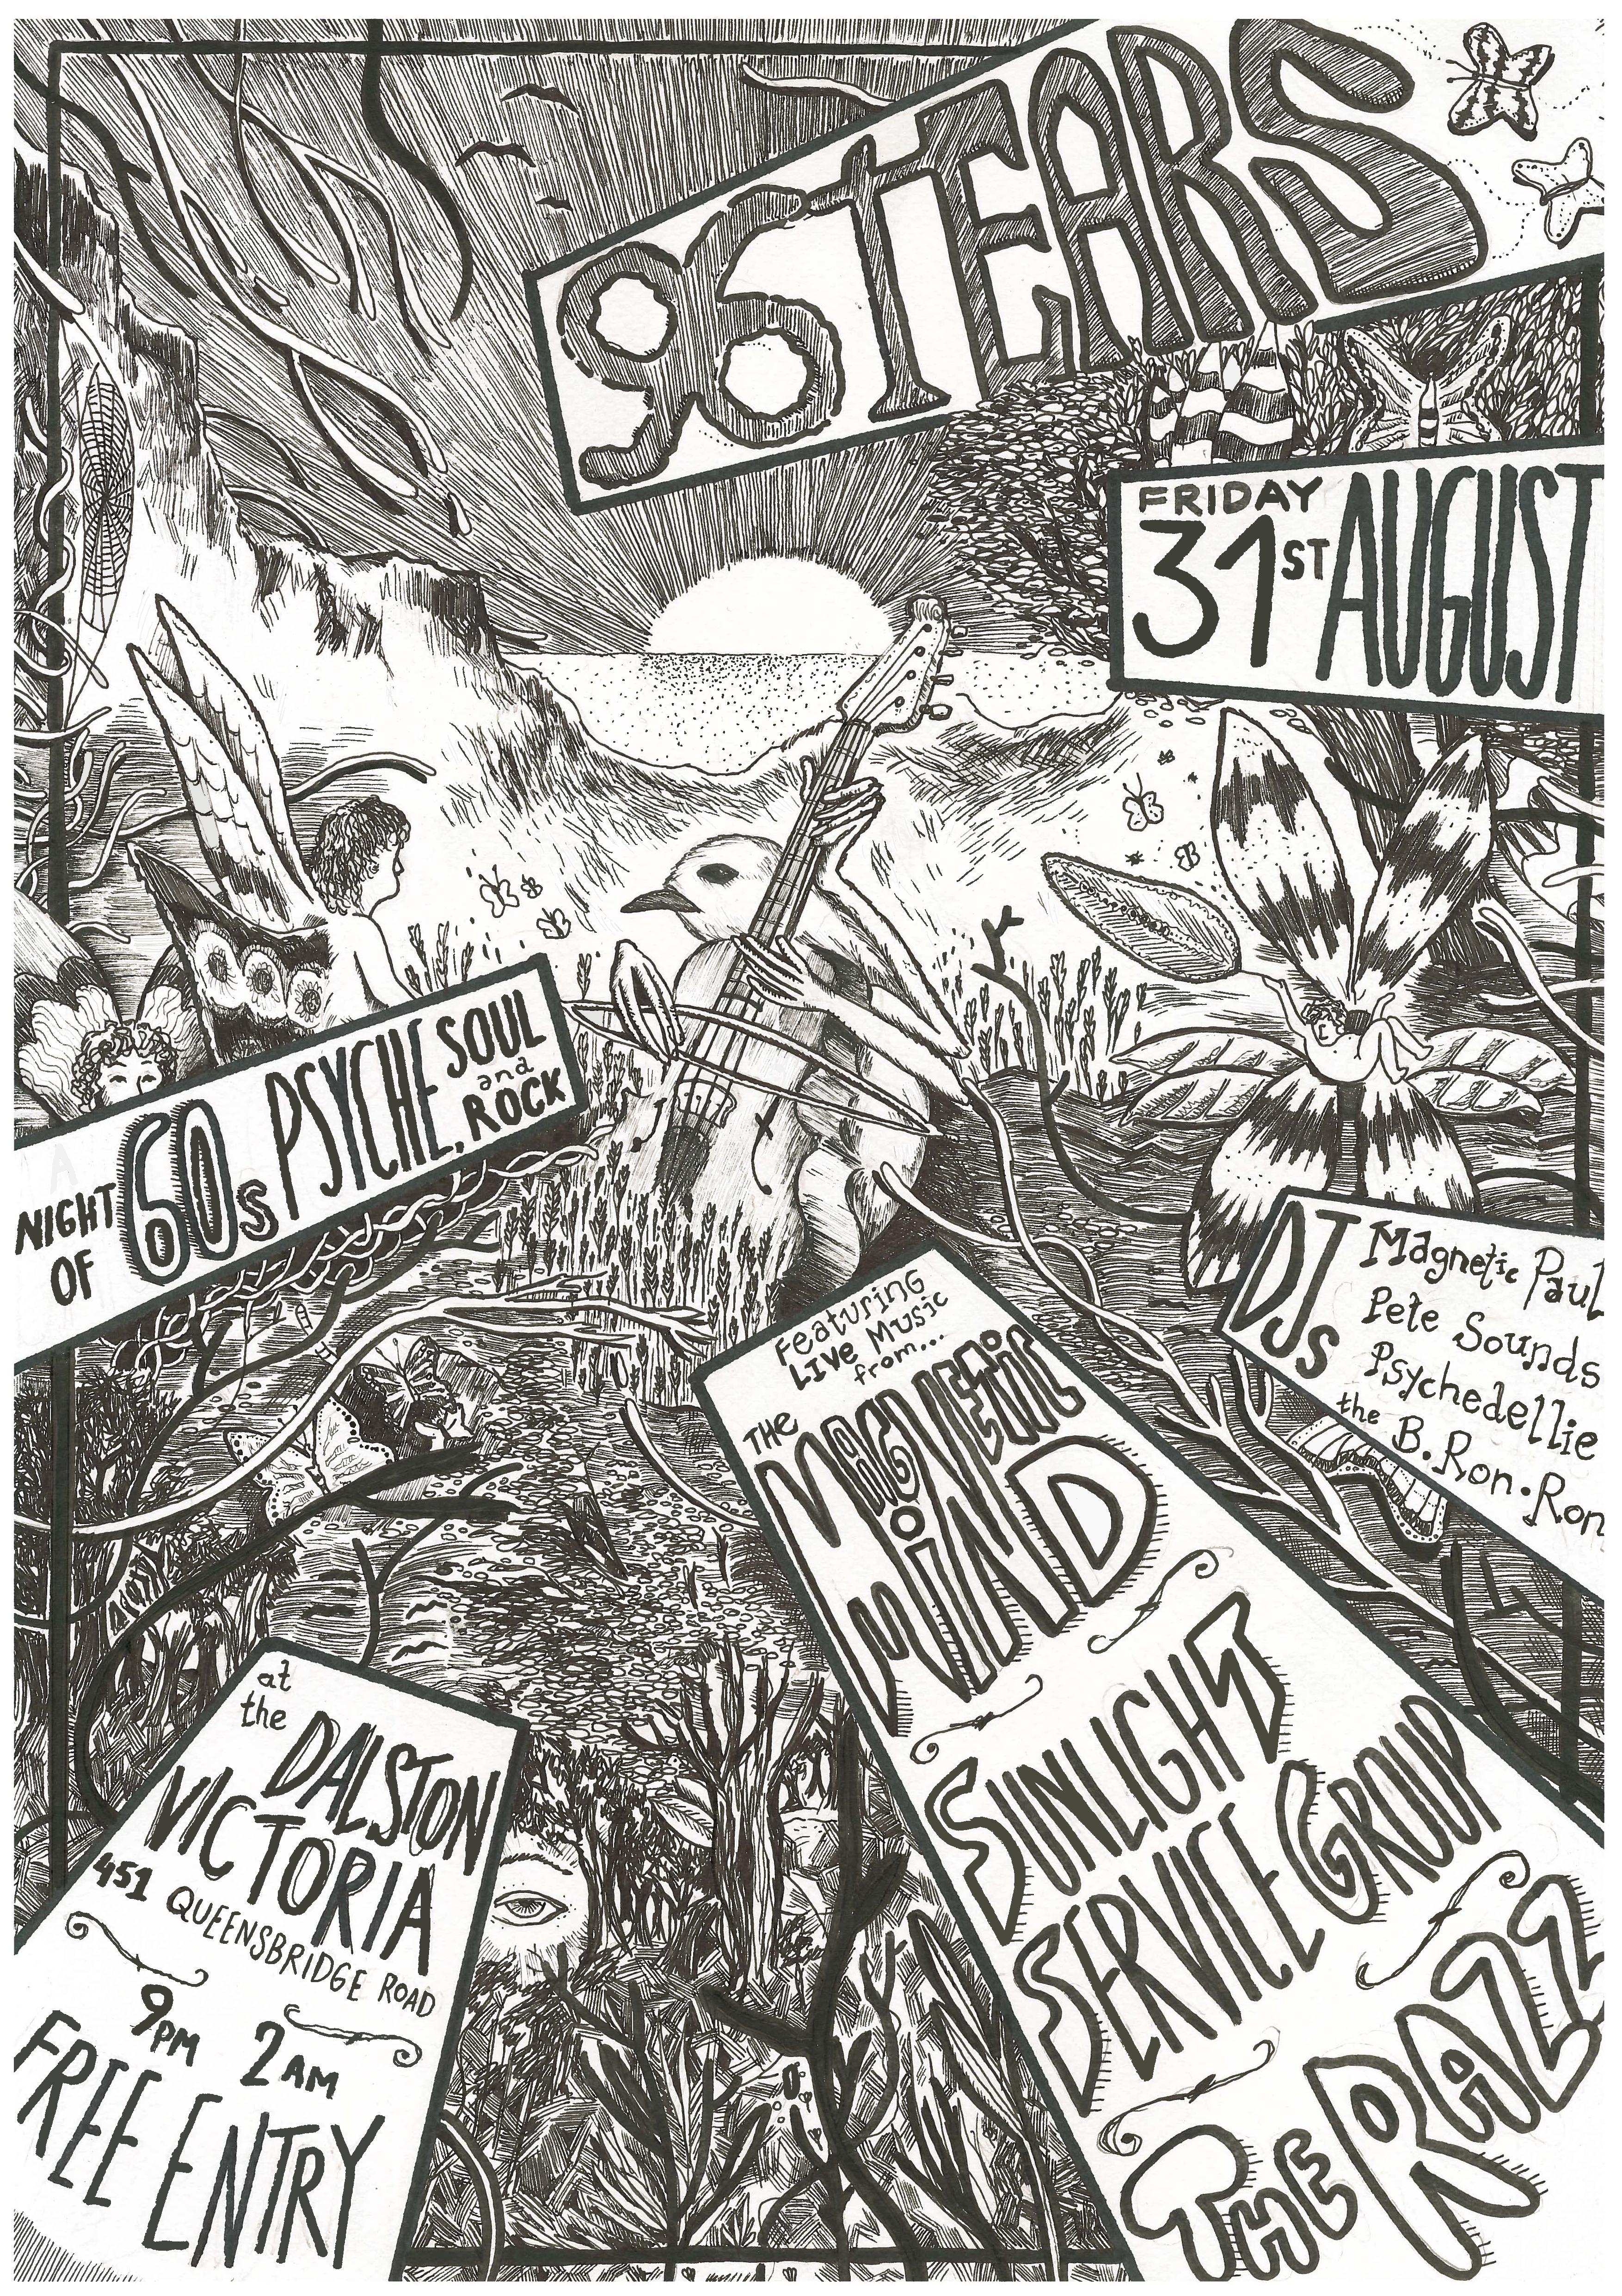 96 TEARS
FRIDAY
31ST AUGUST
NIGHT OF 60s PSYCHE, SOUL and ROCK
DJs
Magnetic Paul
Pete Sounds
Psychedellie
the B.Ron.Ron
Featuring
LIVE MUSIC
from...
THE MAGNETIC
MIND
SUNLIGHT
SERVICE GROUP
THE RAZZ
at
the DALSTON
VICTORIA
451 QUEENSBRIDGE ROAD
9PM 2AM
FREE ENTRY